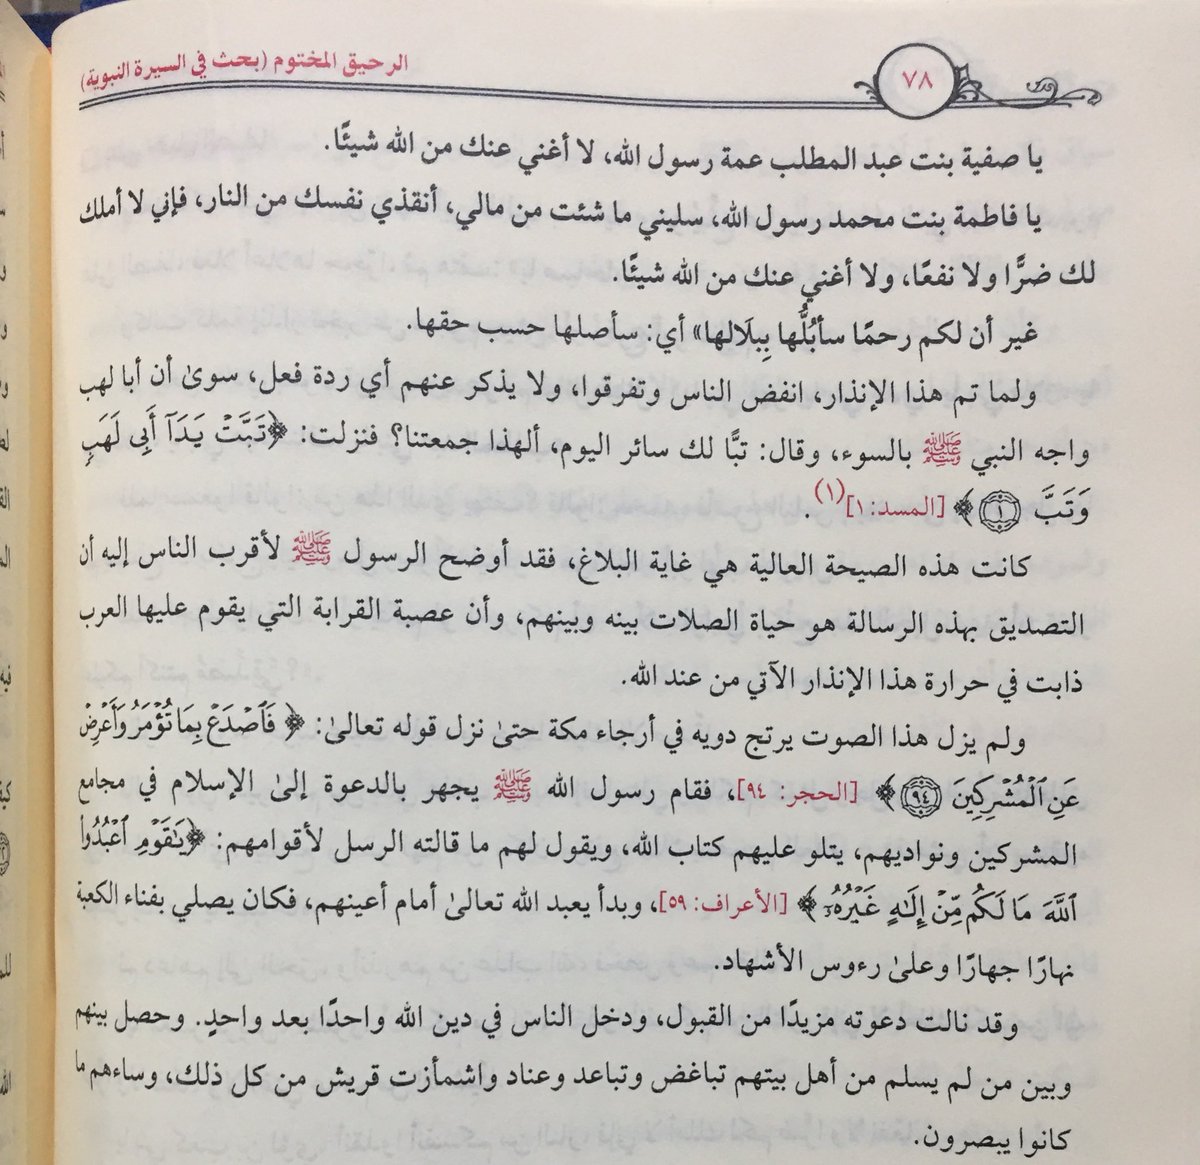 ٧٨
الرحيق المختوم (بحث في السيرة النبوية)
يا صفية بنت عبد المطلب عمة رسول الله، لا أغني عنك من الله شيئًا.
يا فاطمة بنت محمد رسول الله، سليني ما شئت من مالي، أنقذي نفسك من النار، فإني لا أملك
لك ضرًّا ولا نفعًا، ولا أغني عنك من الله شيئًا.
غير أن لكم رحمًا سأبُلُّها بِبِلَالها» أي: سأصلها حسب حقها.
ولما تم هذا الإنذار، انفض الناس وتفرقوا، ولا يذكر عنهم أي ردة فعل، سوىٰ أن أبا لهب
واجه النبي ﷺ بالسوء، وقال: تبًّا لك سائر اليوم، ألهذا جمعتنا؟ فنزلت: ﴿تَبَّتۡ يَدَآ أَبِي لَهَبٖ
وَتَبَّ ١﴾ [المسد: ١](١).
كانت هذه الصيحة العالية هي غاية البلاغ، فقد أوضح الرسول ﷺ لأقرب الناس إليه أن
التصديق بهذه الرسالة هو حياة الصلات بينه وبينهم، وأن عصبة القرابة التي يقوم عليها العرب
ذابت في حرارة هذا الإنذار الآتي من عند الله.
ولم يزل هذا الصوت يرتج دويه في أرجاء مكة حتىٰ نزل قوله تعالىٰ: ﴿فَٱصۡدَعۡ بِمَا تُؤۡمَرُ وَأَعۡرِضۡ
عَنِ ٱلۡمُشۡرِكِينَ ٩٤﴾ [الحجر: ٩٤]، فقام رسول الله ﷺ يجهر بالدعوة إلىٰ الإسلام في مجامع
المشركين ونواديهم، يتلو عليهم كتاب الله، ويقول لهم ما قالته الرسل لأقوامهم: ﴿يَٰقَوۡمِ ٱعۡبُدُواْ
ٱللَّهَ مَا لَكُم مِّنۡ إِلَٰهٍ غَيۡرُهُۥٓ﴾ [الأعراف: ٥٩]، وبدأ يعبد الله تعالىٰ أمام أعينهم، فكان يصلي بفناء الكعبة
نهارًا جهارًا وعلىٰ رءوس الأشهاد.
وقد نالت دعوته مزيدًا من القبول، ودخل الناس في دين الله واحدًا بعد واحدٍ. وحصل بينهم
وبين من لم يسلم من أهل بيتهم تباغض وتباعد وعناد واشمأزت قريش من كل ذلك، وساءهم ما
كانوا يبصرون.